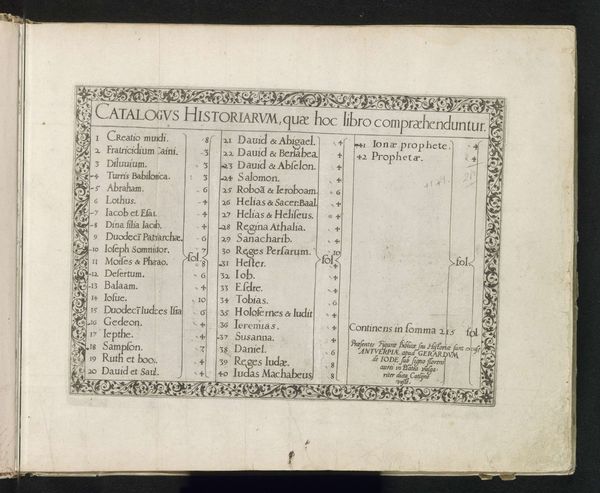 CATALOGVS HISTORIARVM, quæ hoc libro compræhenduntur.
1 Creatio mudi. 8
2 Fratricidium Caini. 3
3 Diluuium. 3
4 Turris Babilonica. 3
5 Abraham. 6
6 Lothus. 4
7 Iacob et Esau. 4
8 Dina filia Iacob. 4
9 Duodeci Patriarchæ. 6
10 Ioseph Somnitor. 7
11 Moises & Phrao. 8
12 Desertum. 6
13 Balaam. 4
14 Iosue. 10
15 Duodeci Iudices 6
16 Gedeon. 4
17 Iepthe. 4
18 Sampson.
19 Ruth et boos. 4
20 Dauid et Saul. 4
fol.
21 Dauid & Abigael. 4
22 Dauid & Bersabea. 4
23 Dauid & Abselon. 4
24 Salomon. 4
25 Roboā & Ieroboam. 6
26 Helias & Sacer. Baal. 4
27 Helias & Heliseus. 4
28 Regina Athalia. 4
29 Sanacharib. 4
30 Reges Persarum. 10
31 Hester. 4
32 Iob. 4
33 Esdre. 4
34 Tobias. 6
35 Holofernes & Iudit 8
36 Ieremias. 4
37 Susanna. 4
38 Daniel. 6
39 Reges Iudæ. 8
40 Iudas Machabeus 8
fol.
41 Ionæ prophete. 4
42 Prophetæ. 4
fol.
Continens in somma 215 fol
Præsentes Figuræ Biblicæ seu Historiæ sunt
ANTVERPIÆ apud GERARDVM
de IODE, sub signo floreni
aurei in Platea vulga-
riter dicta